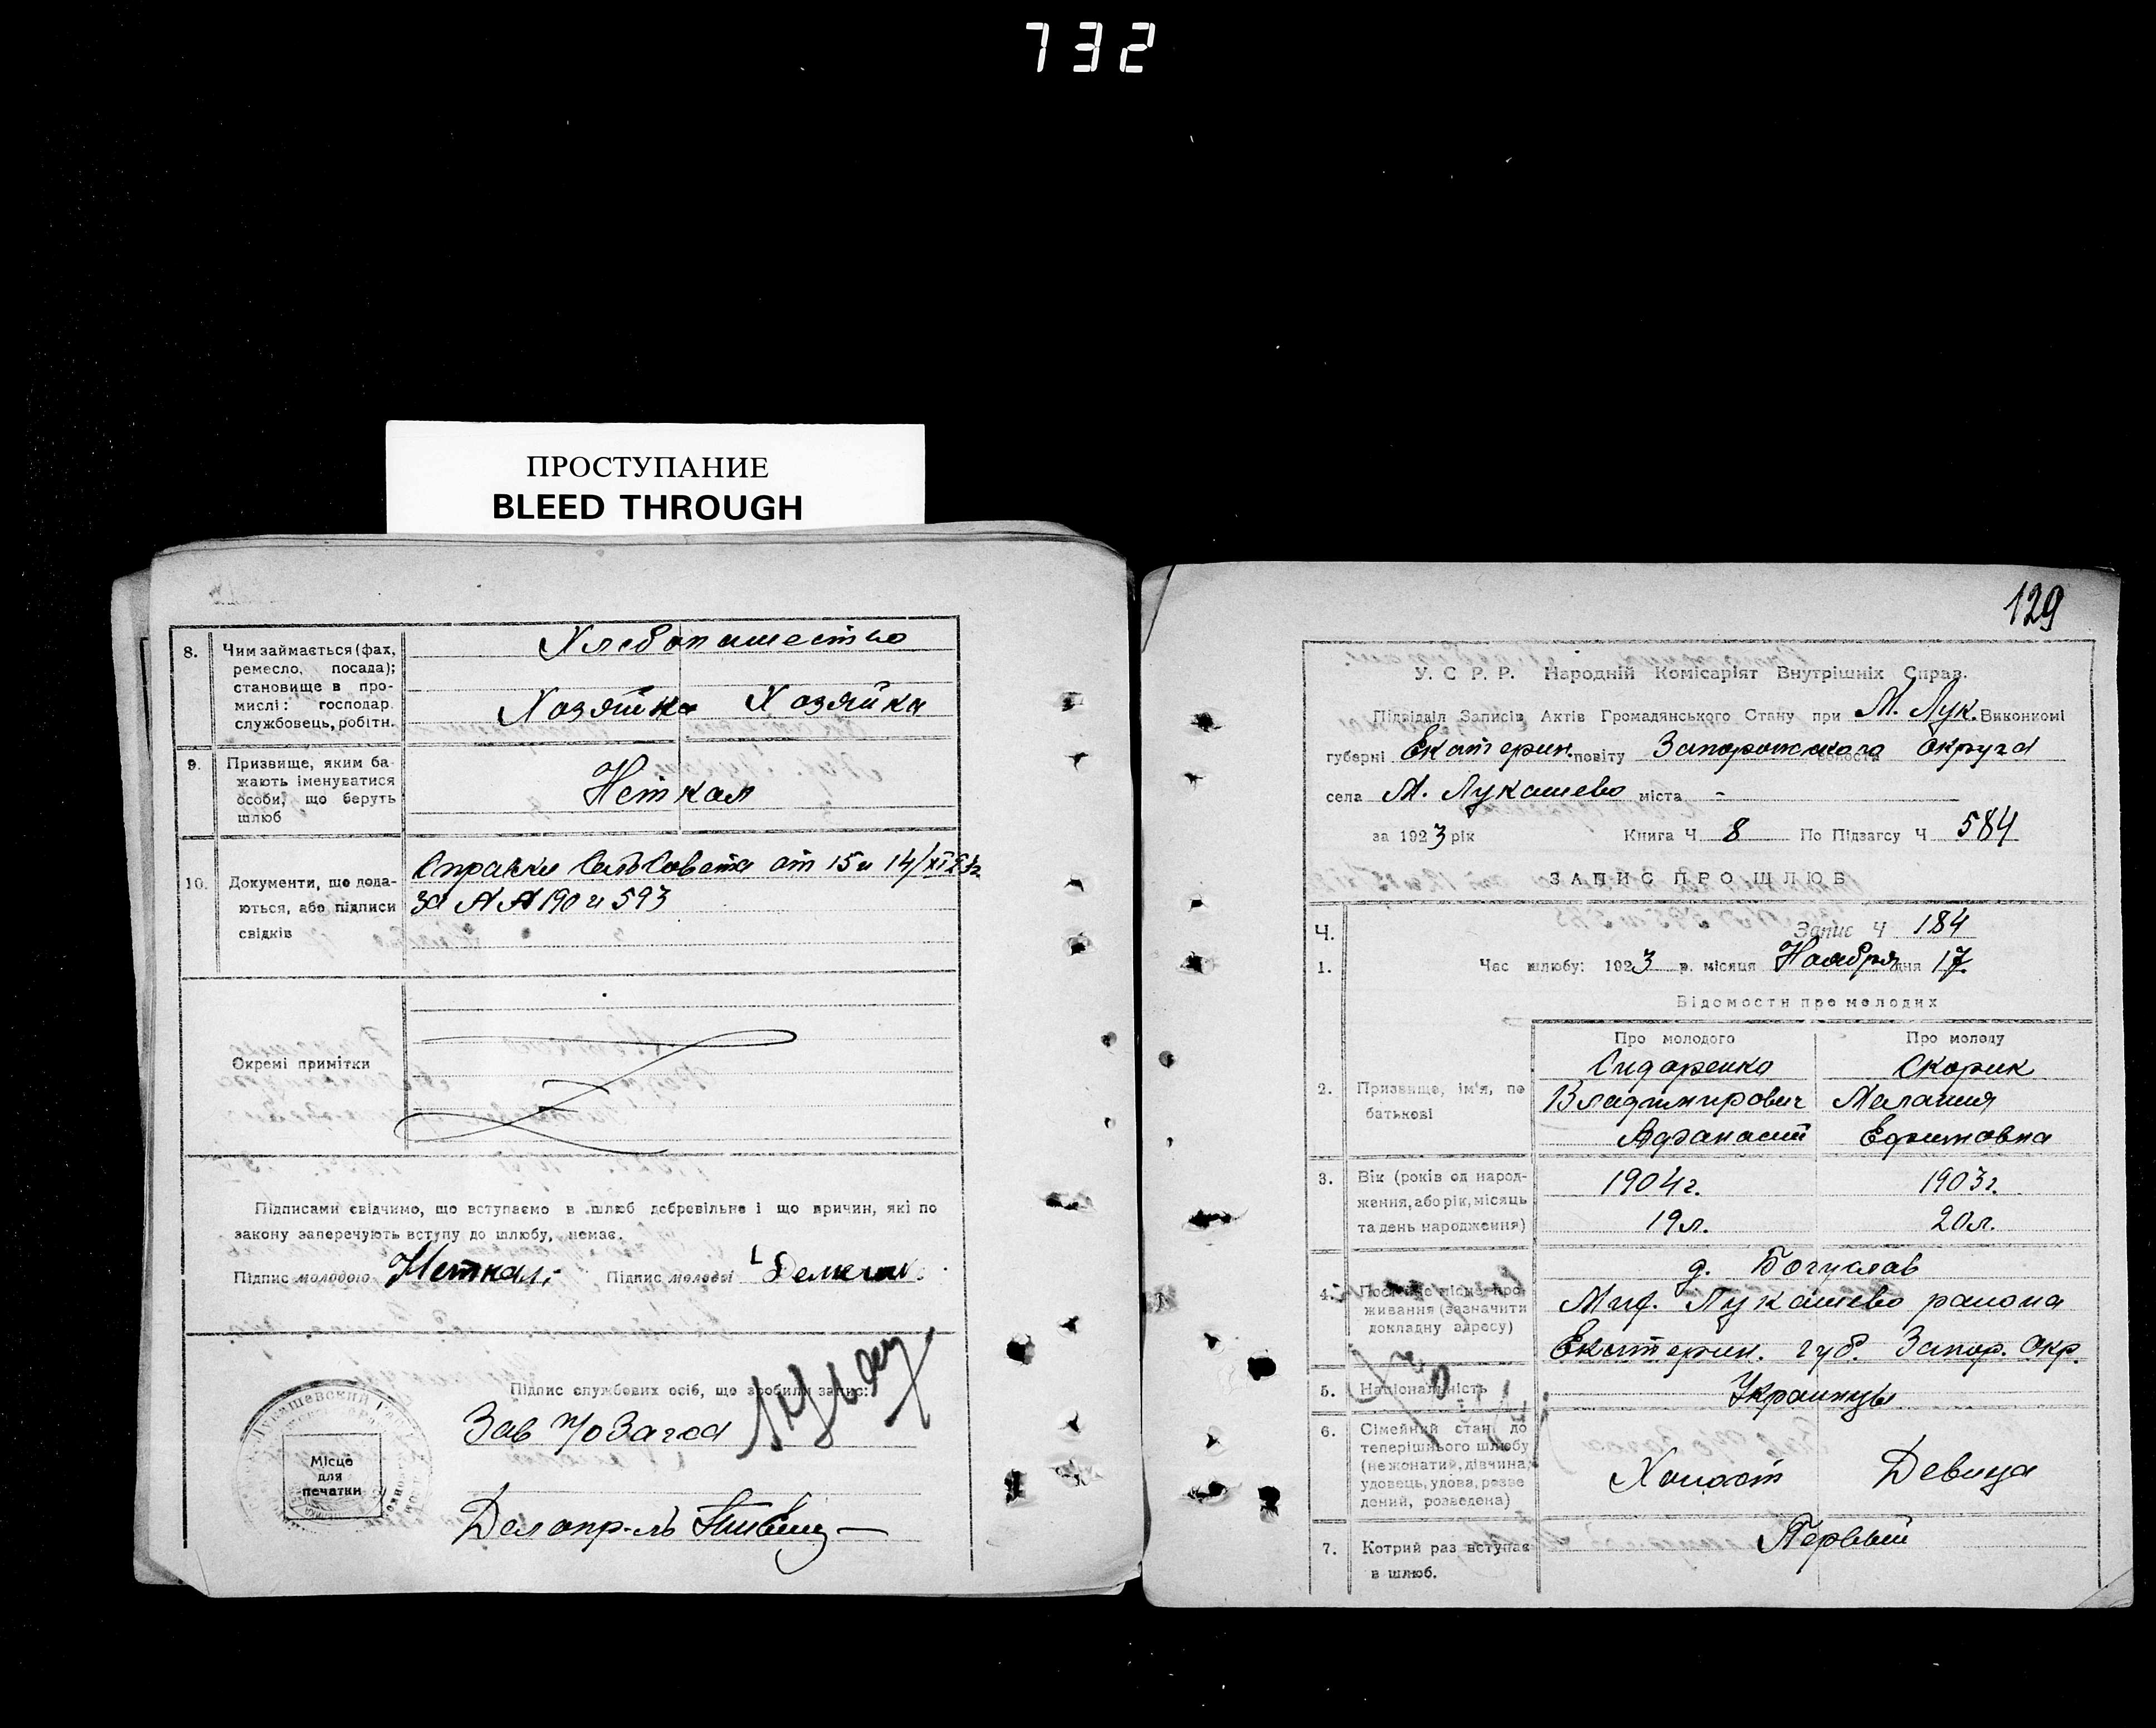 732
ПРОСТУПАНИЕ
BLEED THROUGH
8. Чим займається (фах, ремесло, посада); становище в промислі: господар службовець, робітн.
Хлебопашество
Хозяйка Хозяйка
9. Призвище, яким бажають іменуватися особи, що беруть шлюб
Неткал
10. Документи, що додаються, або підписи свідків
Справки СельСовета от 15 и 14/XI 23г.
за NN 190 и 593
Окремі примітки
Підписами свідчимо, що вступаємо в шлюб добровільне і що причин, які по
закону заперечують вступу до шлюбу, немає.
Підпис молодого Неткал Підпис молодої
Підпис службових осіб, що зробили запис:
Зав п/о Загса
Делопр-ль
Місце
для
печатки
129
У. С. Р. Р. Народній Комісаріят Внутрішніх Справ.
Підвідділ Записів Актів Громадянського Стану при М. Лук. Виконкомі
губерні Екатерин. повіту Запорожскаго волости Округа
села М. Лукашево міста -
за 1923 рік Книга Ч 8 По Підзагсу Ч 584
ЗАПИС ПРО ШЛЮБ
Ч. Запис Ч 184
1. Час шлюбу: 1923 р. місяця Ноября дня 17
Відомости про молодих
Про молодого Про молоду
2. Призвище, ім'я, по батькові
Сидаренко Скорик
Владимирович Мелания
Афанасий Ефимовна
3. Вік (років од народження, або рік, місяць та день народження)
1904г. 1903г.
19л. 20л.
4. Постійне місце проживання (зазначити докладну адресу)
д. Богуслав
Мих. Лукашево района
Екатерин. губ. Запор. Окр.
5. Національність
Украинцы
6. Сімейний стан до теперішнього шлюбу (нежонатий, дівчина, удовець, удова, розведений, розведена)
Холост Девица
7. Котрий раз вступає в шлюб.
Первый